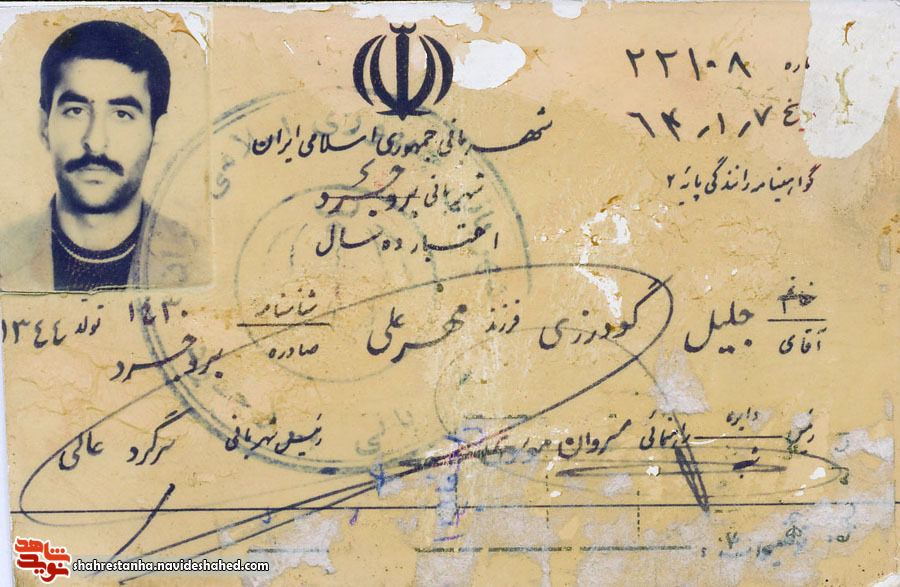 ۲۲۱۰۸
۶۴/۱/۷
شهربانی جمهوری اسلامی ایران
گواهینامه رانندگی پایه ۲
شهربانی بروجرد
اعتبار ده سال
خانم
آقای جلیل گودرزی فرزند مهرعلی شناسنامه ۱۴۳۰ تولد ۱۳۴۴
صادره بروجرد
رئیس دایره راهنمائی
رئیس شهربانی سرگرد عالی
نوید شاهد
shahrestanha.navideshahed.com